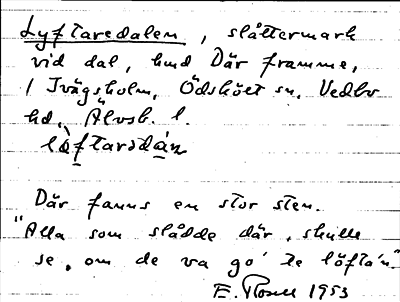 Lyftaredalen, slåttermark
vid dal, hmd Där framme,
1 Ivägsholm, Ödskölt sn, Vedbo
hd, Älvsb. l.
lòftarsdán
Där fanns en stor sten.
"Alla som slådde där, skulle
se, om de va go' te löfta'n."
E. Rosell 1953